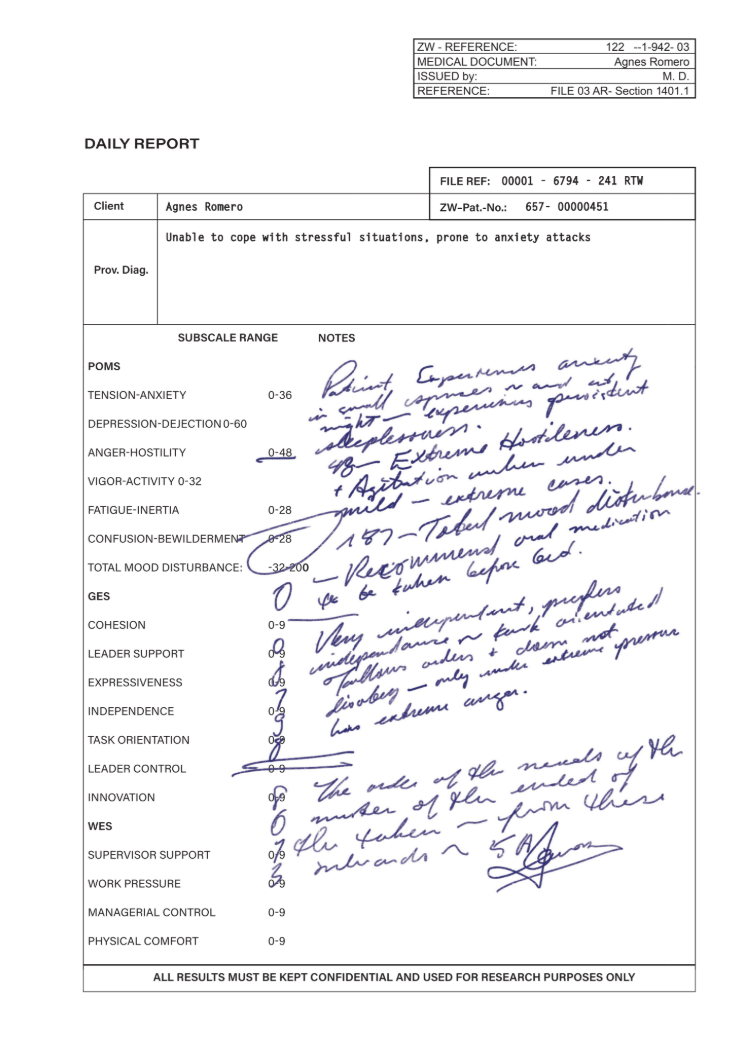 ZW - REFERENCE: 122 --1-942- 03
MEDICAL DOCUMENT: Agnes Romero
ISSUED by: M. D.
REFERENCE: FILE 03 AR- Section 1401.1
DAILY REPORT
FILE REF: 00001 - 6794 - 241 RTW
Client Agnes Romero ZW-Pat.-No.: 657- 00000451
Unable to cope with stressful situations, prone to anxiety attacks
Prov. Diag.
SUBSCALE RANGE NOTES
POMS
TENSION-ANXIETY 0-36
DEPRESSION-DEJECTION 0-60
ANGER-HOSTILITY 0-48
VIGOR-ACTIVITY 0-32
FATIGUE-INERTIA 0-28
CONFUSION-BEWILDERMENT 0-28
TOTAL MOOD DISTURBANCE: -32-200
GES
COHESION 0-9
LEADER SUPPORT 0-9
EXPRESSIVENESS 0-9
INDEPENDENCE 0-9
TASK ORIENTATION 0-9
LEADER CONTROL 0-9
INNOVATION 0-9
WES
SUPERVISOR SUPPORT 0-9
WORK PRESSURE 0-9
MANAGERIAL CONTROL 0-9
PHYSICAL COMFORT 0-9
Patient Experiences anxiety
in small and at
night - experiencing persistent
sleeplessness.
48 - Extreme Hostileness.
+ Agitation when under
mild - extreme cases.
187 - Total mood disturbance.
- Recommend oral medication
to be taken before bed.
Very independent, prefers
independance task orientated
follows orders + does not
disobey - only under extreme pressure
has extreme anger.
The order of the of the
number of the ended of
the taken - from these
5
ALL RESULTS MUST BE KEPT CONFIDENTIAL AND USED FOR RESEARCH PURPOSES ONLY